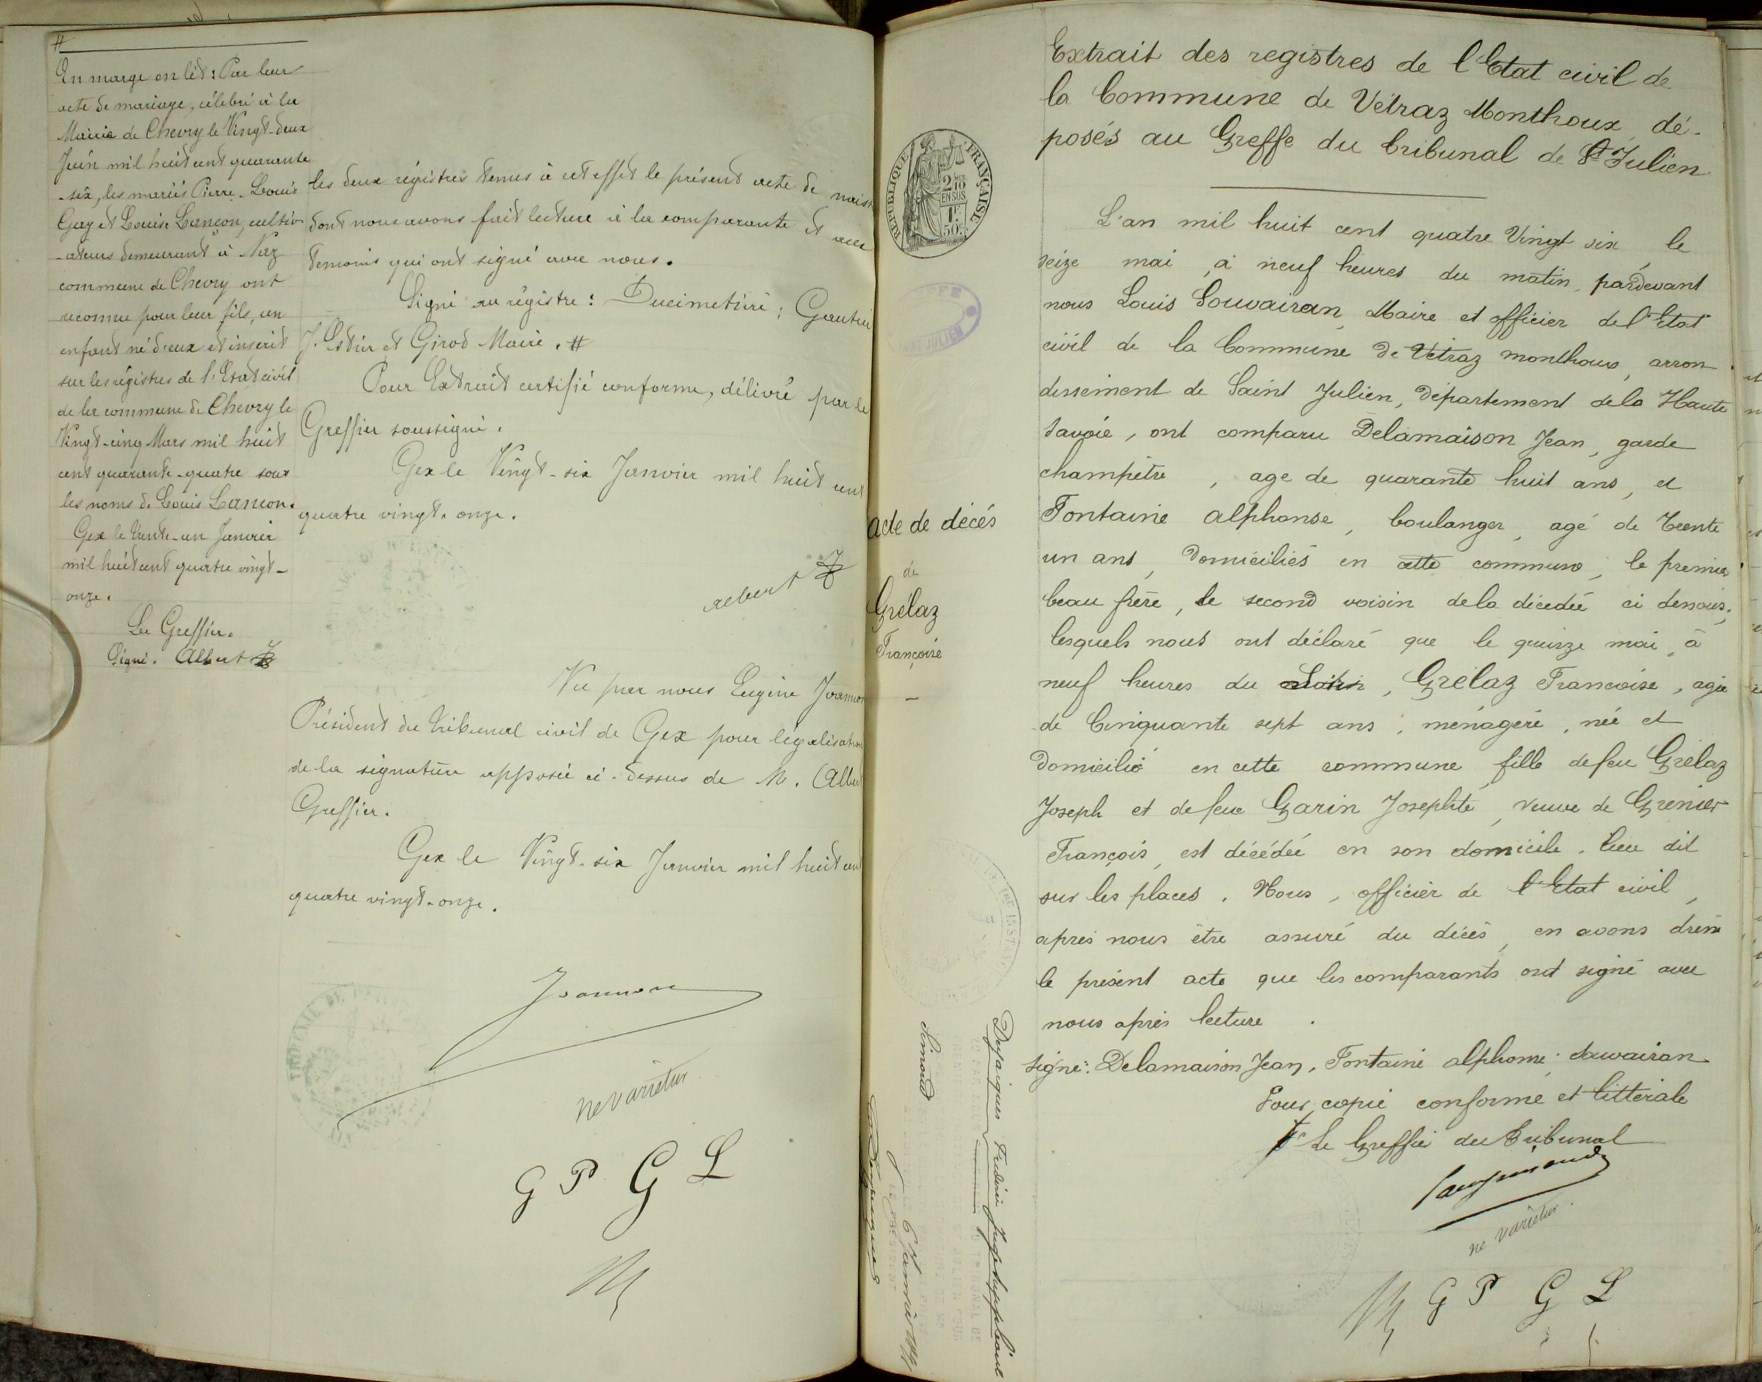 #
En marge on lit : Par leur
acte de mariage, célébré à la
Mairie de Chevry le Vingt-deux
Juin mil huit cent quarante
-six, les mariés Pierre-Louis
Gay et Louise Lançon, cultiv-
-ateurs demeurant à Naz
commune de Chevry ont
reconnu pour leur fils, un
enfant né d'eux et inscrit
sur les régistres de l'Etat civil
de la commune de Chevry le
Vingt-cinq Mars mil huit
cent quarante-quatre sous
les noms de Louis Lancon.
Gex le trente-un Janvier
mil huit cent quatre vingt-
onze.
Le Greffier.
Signé. Albert
les deux régistres tenus à cet effet le présent acte de naiss
dont nous avons fait lecture à la comparante et aux
témoins qui ont signé avec nous.
Signé au régistre : Ducimetière ; Gautier
J. et Girod Maire. #
Pour Extrait certifié conforme, délivré par le
Greffier soussigné.
Gex le Vingt-six Janvier mil huit cent
quatre vingt-onze.
Albert
Vu par nous Eugène Joannon
Président du tribunal civil de Gex pour légalisation
de la signature apposée ci-dessus de M. Albert
Greffier.
Gex le Vingt-six Janvier mil huit cent
quatre vingt-onze.
Joannon
ne varietur
G P G L
Extrait des registres de l'Etat civil de
la Commune de Vétraz Monthoux, dé-
posés au Greffe du tribunal de St Julien
RÉPUBLIQUE FRANÇAISE
2/10 EN SUS
1F 50C
L'an mil huit cent quatre Vingt six, le
seize mai, à neuf heures du matin, pardevant
nous Louis Souvairan, Maire et officier de l'Etat
civil de la Commune de Vétraz monthoux, arron
dissement de Saint Julien, département de la Haute
Savoie, ont comparu Delamaison Jean, garde
champêtre, age de quarante huit ans, et
Fontaine alphonse, boulanger, agé de Trente
un ans, domiciliés en cette commune, le premier
beau frère, le second voisin de la décédée ci dessous,
lesquels nous ont déclaré que le quinze mai, à
neuf heures du soir, Grélaz Françoise, agée
de Cinquante sept ans, ménagère, née et
domicilié en cette commune, fille defeu Grélaz
Joseph et de feue Garin Josephte, veuve de Grenier
François, est décédée en son domicile. lieu dit
sur les places. Nous, officier de l'Etat civil,
après nous être assuré du décès, en avons dréssé
le présent acte que les comparants ont signé avec
nous après lecture.
signé: Delamaison Jean, Fontaine alphonse, Souvairan
Pour copie conforme et littérale
Le Greffier du Tribunal
ne varietur.
G P G L
Acte de décés
de
Grélaz
Françoise
Simond
Janvier